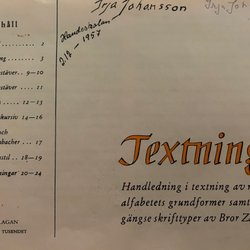 håll
2
ng 3
stäver 9—10
estäver 11
n 12—13
kursiv 14—16
och
nbacher 17
sstil 18—19
ningar 20—24
LAGAN
TUSENDET
Irja Johansson
Irja Joh
Handenskolan
2/9 - 1957
Textning
Handledning i textning av
alfabetets grundformer samt
gängse skrifttyper av Bror Z